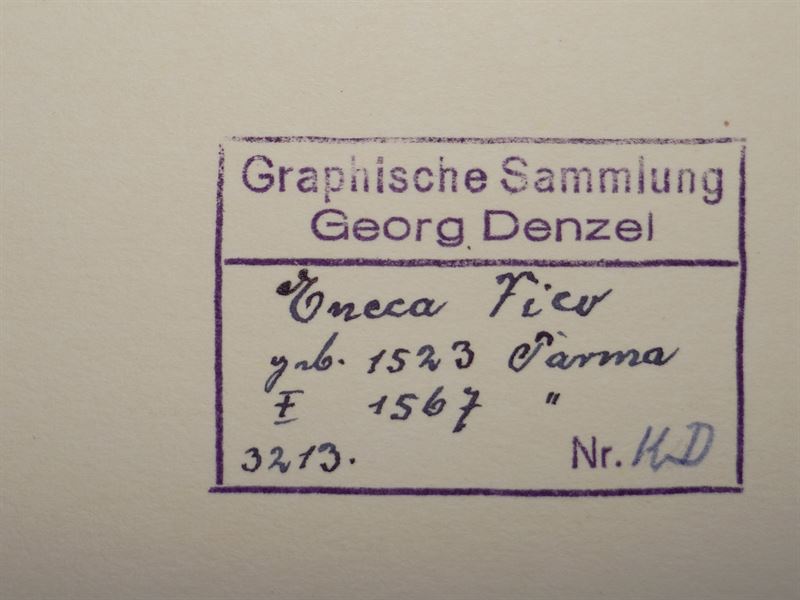 Graphische Sammlung
Georg Denzel
Eneca Vico
geb. 1523 Parma
‡ 1567 "
3213. Nr. KD